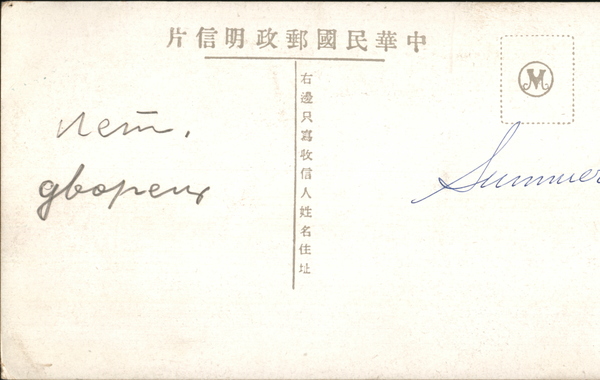 片信明政郵國民華中
右邊只寫收信人姓名住址
лет.
дворец
Summer